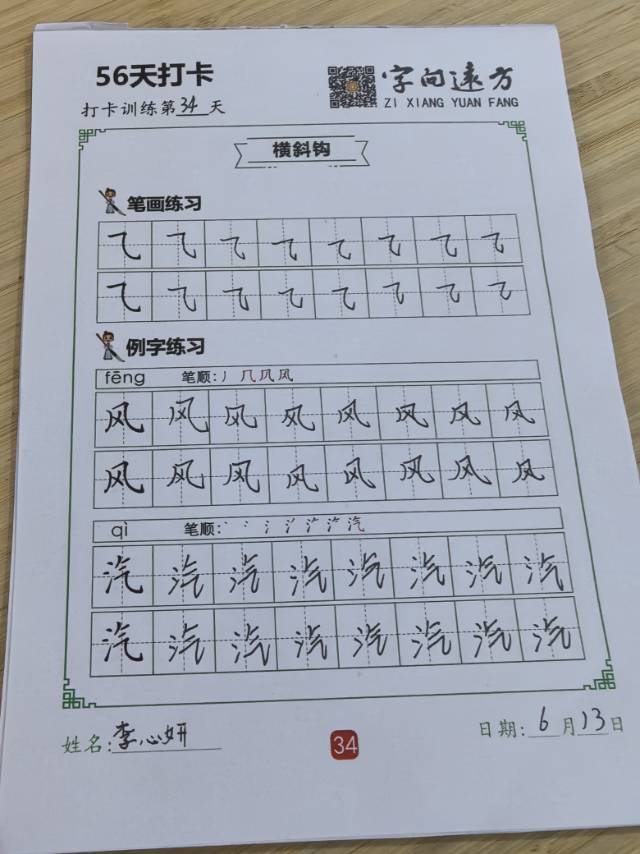 56天打卡
字向远方
ZI XIANG YUAN FANG
打卡训练第34天
横斜钩
笔画练习
⺄ ⺄ ⺄ ⺄ ⺄ ⺄ ⺄ ⺄
⺄ ⺄ ⺄ ⺄ ⺄ ⺄ ⺄ ⺄
例字练习
fēng 笔顺:丿 几 风 风
风 风 风 风 风 风 风 风
风 风 风 风 风 风 风 风
qì 笔顺:
汽 汽 汽 汽 汽 汽 汽 汽
汽 汽 汽 汽 汽 汽 汽 汽
姓名:李心妍
34
日期:6月13日